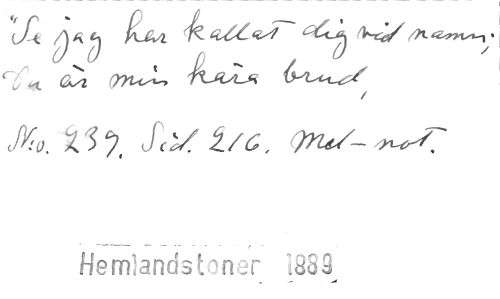 "Se jag har kallat dig vid namn;
Du är min kära brud,
N:o. 239. Sid. 216. Mel-not.
Hemlandstoner 1889